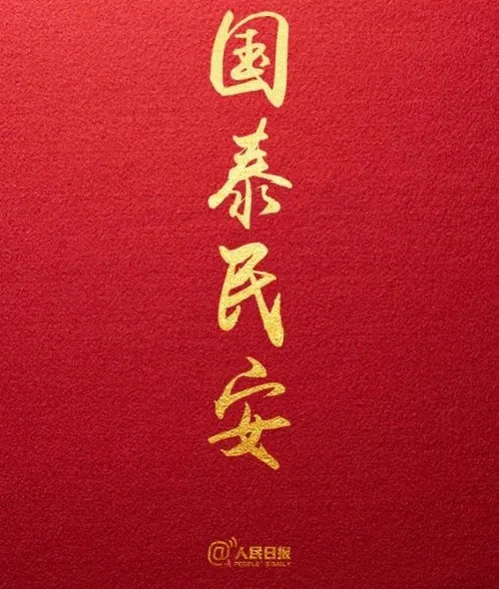 国泰民安
@人民日报
PEOPLE'S DAILY